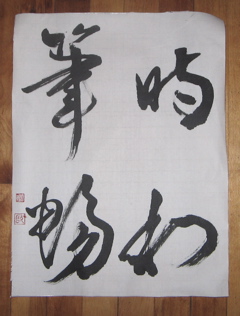 時和
筆暢